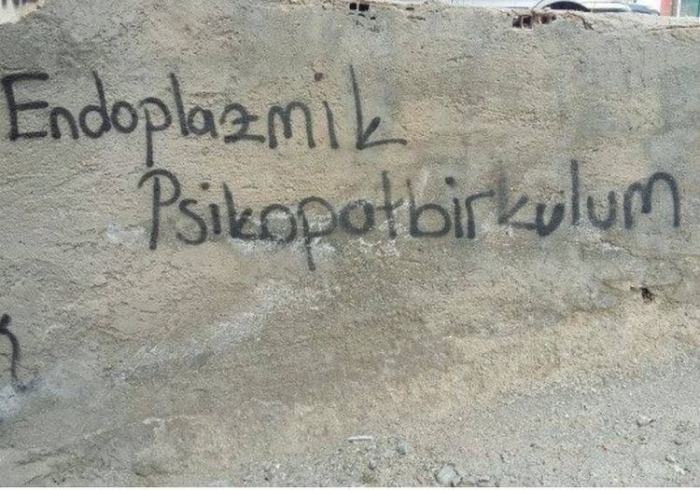 Endoplazmik
Psikopatbirkulum